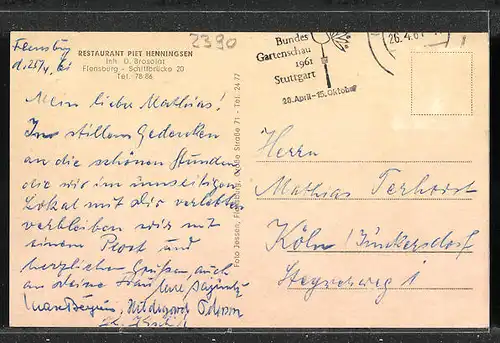 Flensburg
d. 25/4. 61
2390
RESTAURANT PIET HENNINGSEN
Inh. O. Brosolat
Flensburg - Schiffbrücke 20
Tel. 78 86
Mein lieber Mathias!
Im stillem Gedenken
an die schönen Stunden
die wir im
Lokal mit Dir verlebten
verbleiben wir mit
einem Prost und
herzlichen Grüßen auch
an deine Frau Eure
Hildegard
Foto Jessen, Flensburg, Große Straße 71 · Tel. 24 77
Bundes
Gartenschau
1961
Stuttgart
20. April - 15. Oktober
26.4.61
Herrn
Mathias Terhorst
Köln / Junkersdorf
Stegerweg 1